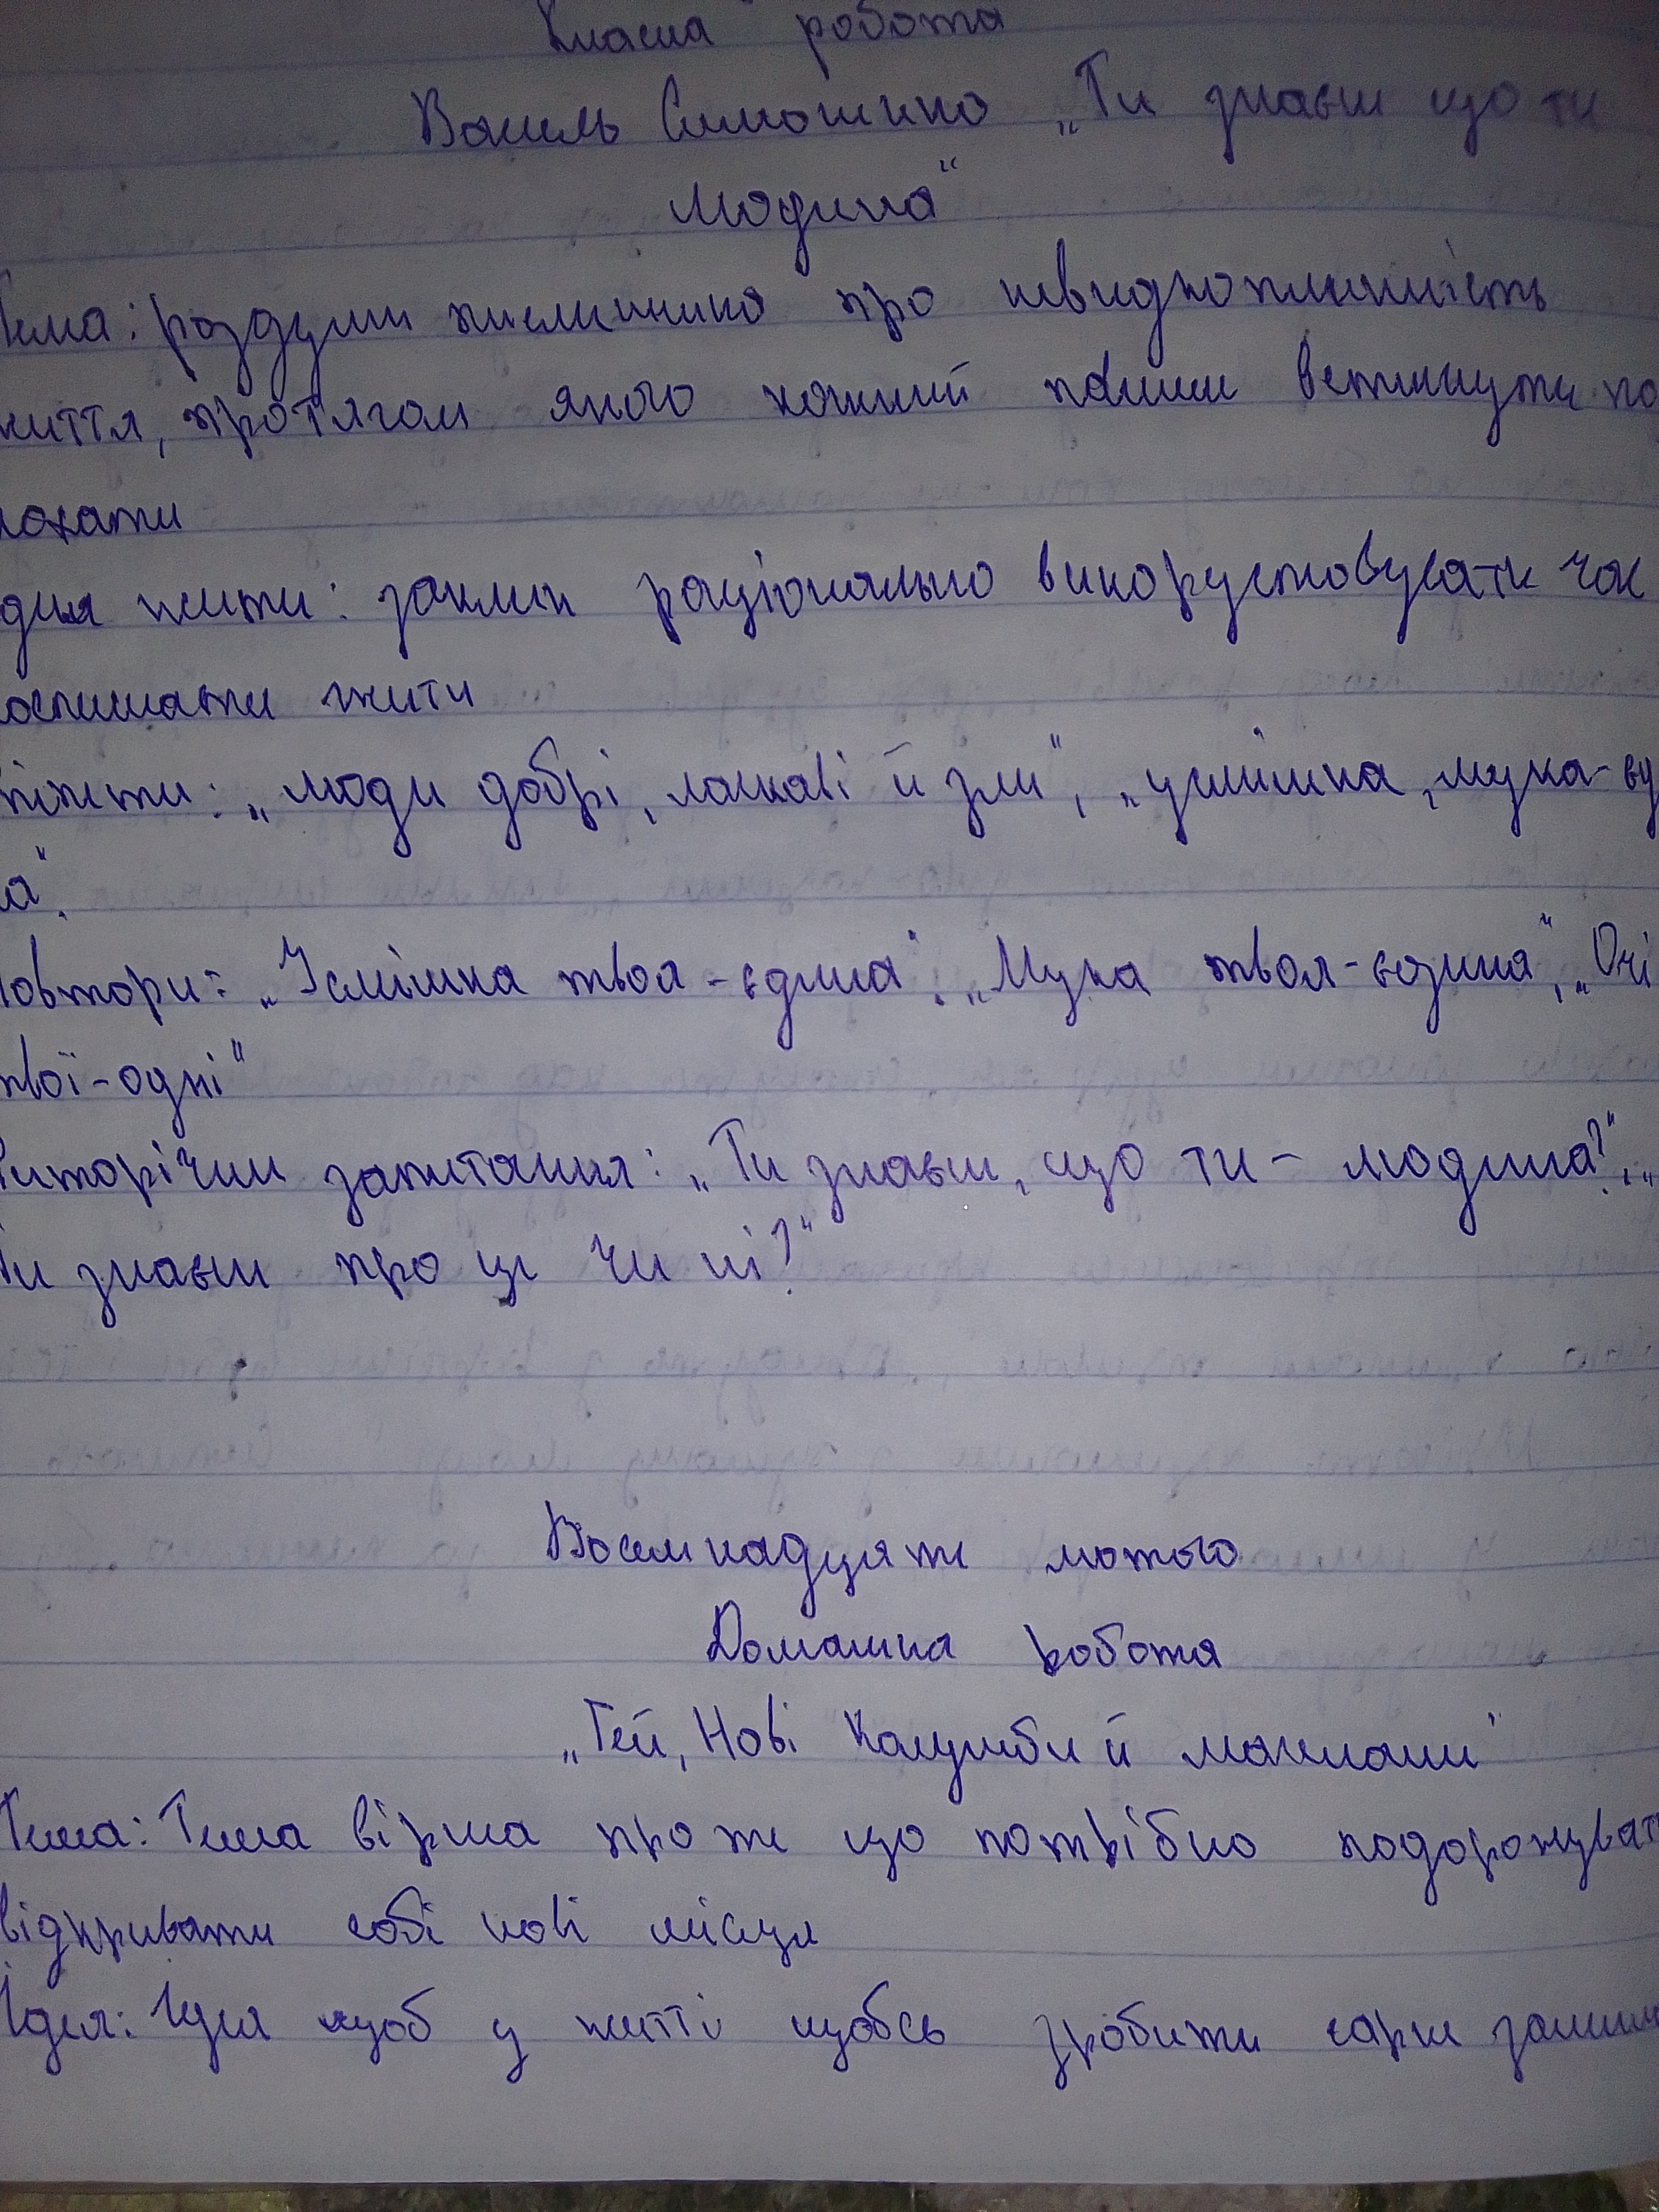 Класна робота
Василь Симоненко „Ти знаєш що ти
людина“
Тема: роздуми письменника про швидкоплинність
життя, протягом якого кожний повинен встигнути по
кохати
ідея жити: заклик раціонально використовувати час
поспішати жити
епітети: „люди добрі, ласкаві й злі“, „усмішка, мука-єд
а“.
Повтори: „Усмішка твоя-єдина“, „Мука твоя-єдина“, „Очі
твої-одні“
Риторічни запитання: „Ти знаєш, що ти - людина?“, „
Ти знаєш про це чи ні?“
Восемнадцяте лютого
Домашна робота
„Гей, Нові Колумби й магелани“
Тема: Тема вірша про те що потрібно подорожуват
відкривати собі нові місця
Ідея: Ідея щоб у житті щобсь зробити гарне залиши